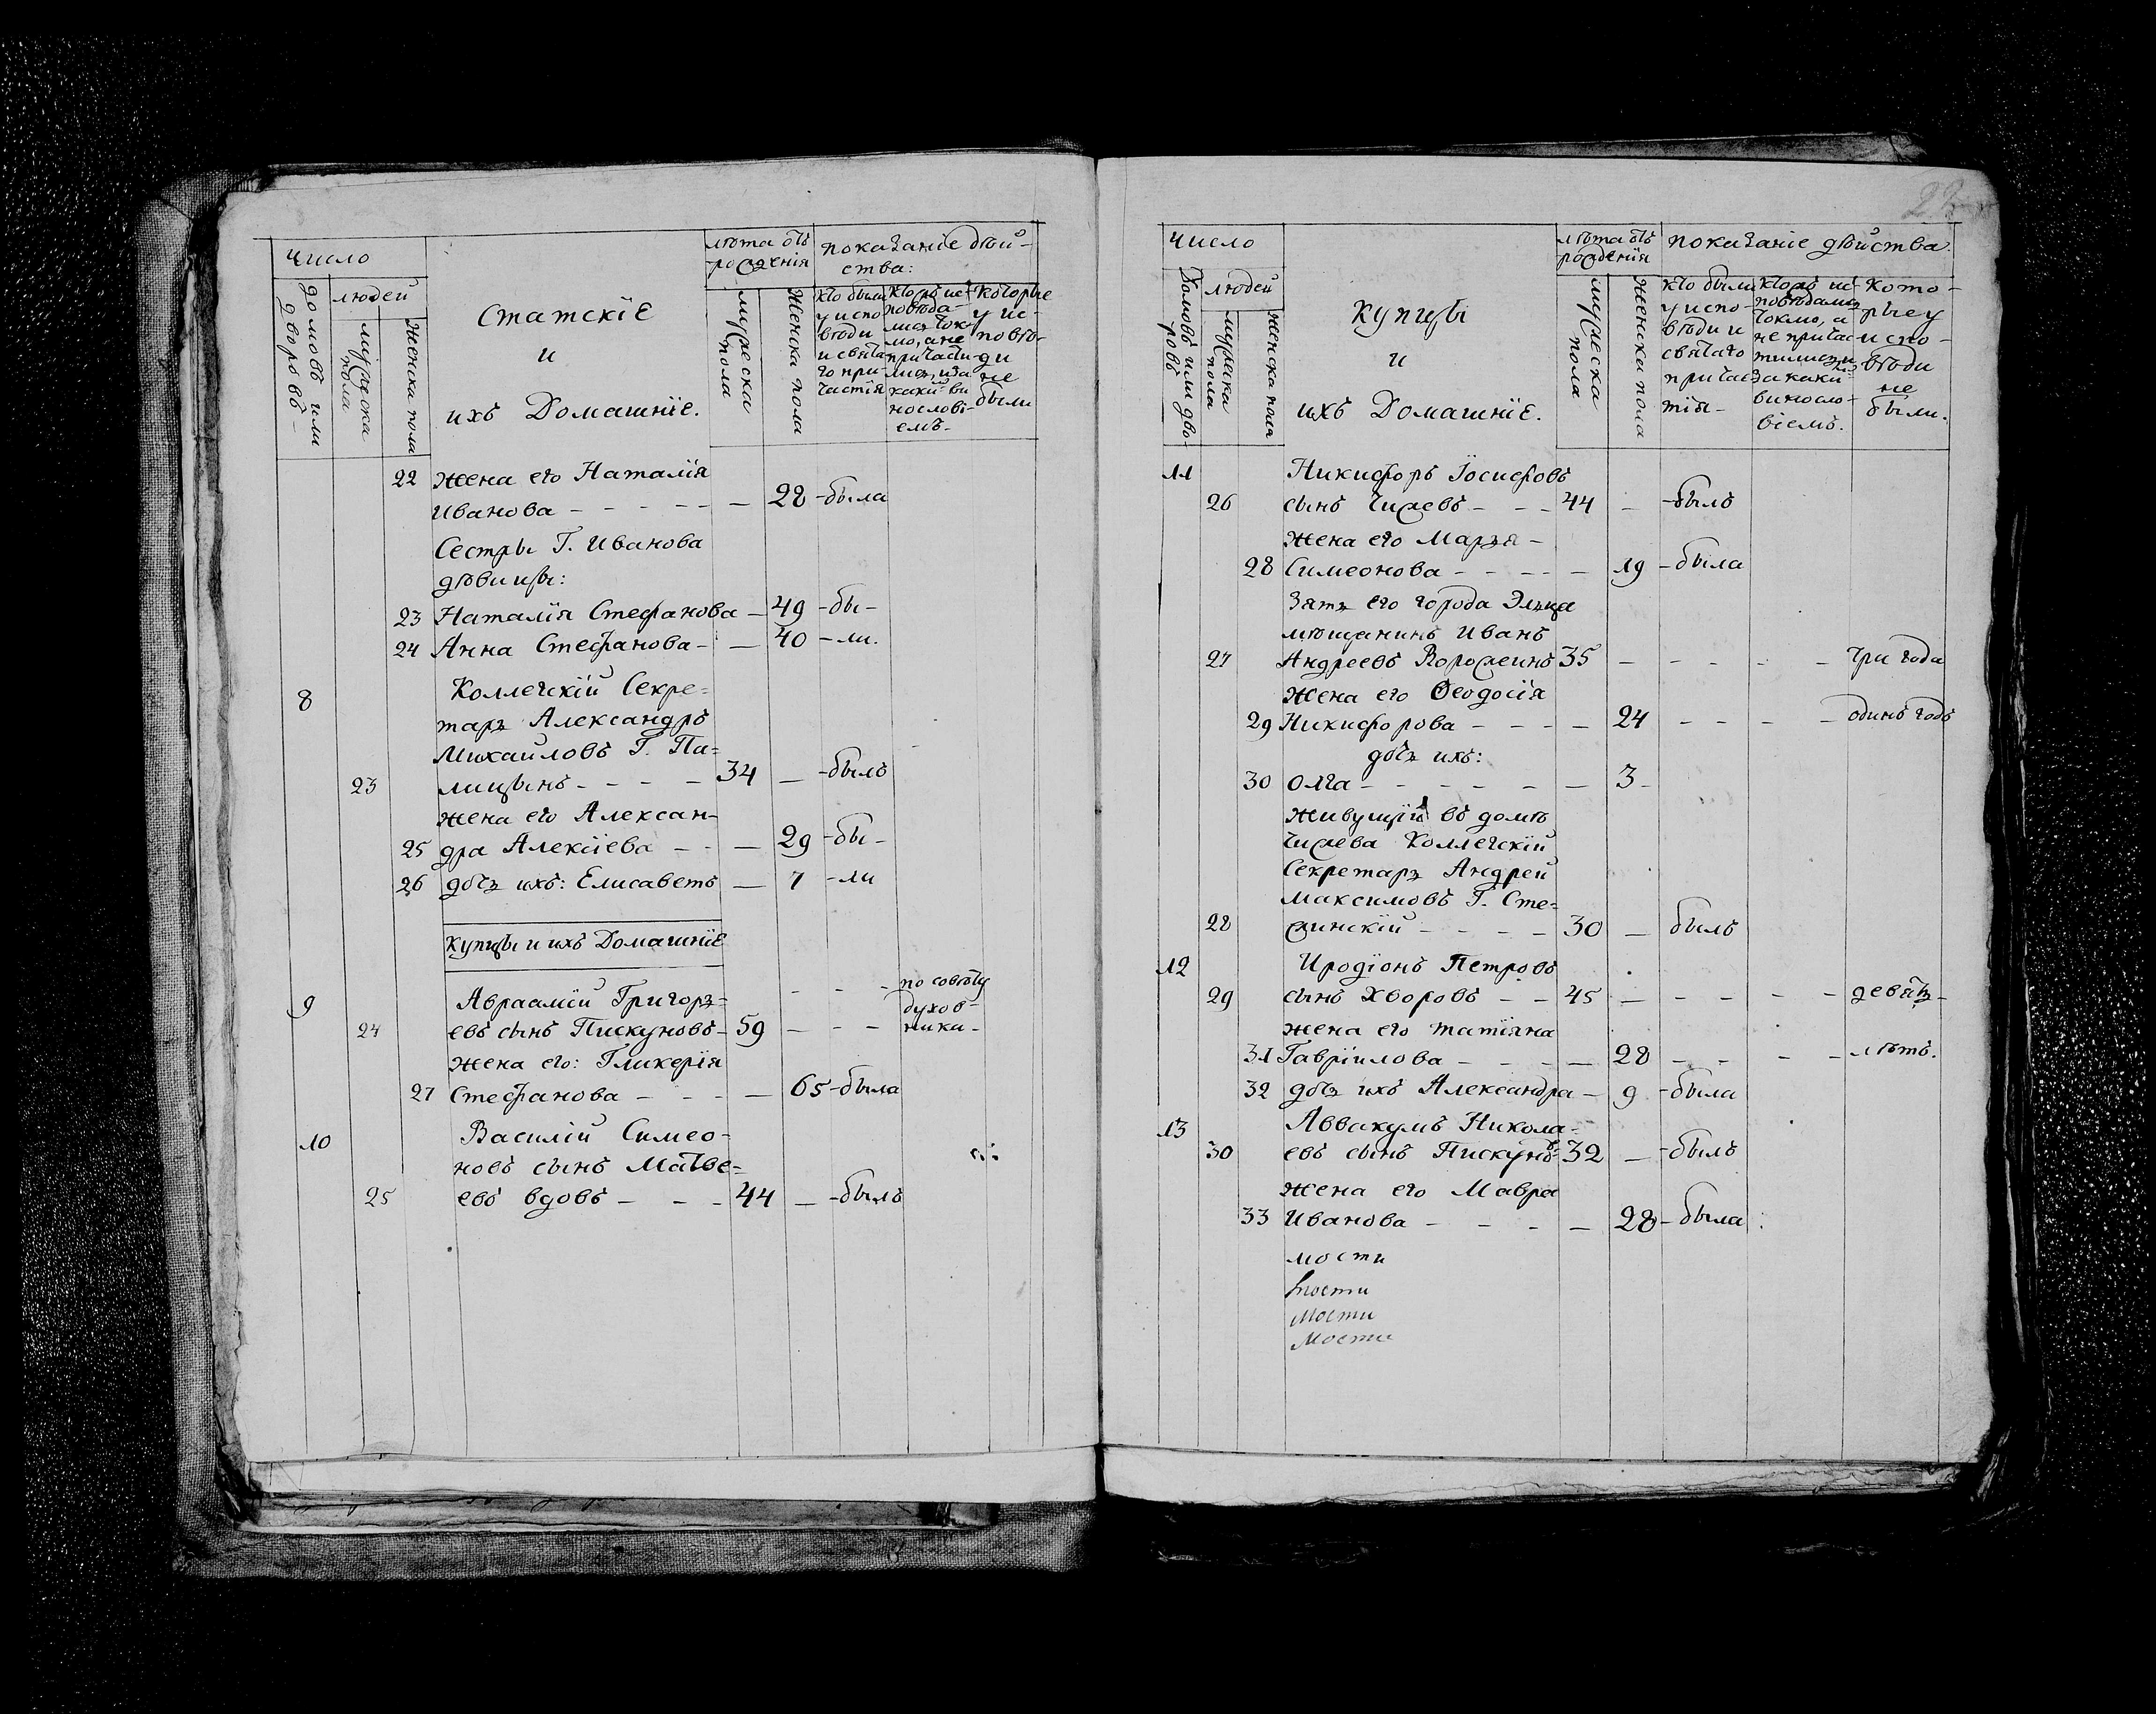 число
домовъ или дворовъ
людей
мужеска пола
женска пола
Статскiе
и
ихъ Домашнiе.
лѣта отъ
рожденiя
мужеска пола
женска пола
показанiе дѣй-
ства:
кто были
у испо
вѣди
и свята
го при-
частiя
кто ис-
повѣда-
лись ток
мо, а не
причасти-
лись, и за
каким ви
нослові-
емъ.
которые
у ис-
повѣ-
ди
не
были
22 жена его Наталiя
Иванова - - - - - 28 - была
Сестры Г. Иванова
дѣвицы:
23 Наталiя Стефанова - 49 - бы-
24 Анна Стефанова - - 40 - ли.
8 Коллегскiй Секре=
тарь Александръ
Михаиловъ Г. Па=
23 лицынъ - - - - 34 - - былъ
жена его Алексан-
25 дра Алексiева - - - 29 - бы-
26 дочь ихъ: Елисаветъ - 7 - ли
купцы и ихъ Домашнiе
9 Авраамiй Григорь= - - - по совѣту
24 евъ сынъ Пискуновъ - 59 - - - духов-
ника -
жена его: Гликерiя
27 Стефанова - - - - 65 - была
10 Василiй Симео-
новъ сынъ Матве=
25 евъ вдовъ - - - 44 - - былъ
число
Домовъ или дво-
ровъ
людей
мужеска пола
женска пола
купцы
и
ихъ Домашнiе.
лѣта отъ
рожденiя
мужеска пола
женска пола
показанiе дѣйства.
кто были
у испо-
вѣди и
святаго
причас
тiя -
кто ис-
повѣдались
токмо, а
не причас
тились и
за каким
винослo-
вiемъ.
кото-
рые у
испо-
вѣди
не
были.
11 Никифоръ Iосифовъ
26 сынъ Чижевъ - - - 44 - - былъ
жена его Марья -
28 Симеонова - - - - - 19 - была
Зять его города Эльца
мѣщанинъ Иванъ
27 Андреевъ Ворожеинъ 35 - - - - - три года
жена его Ѳеодосiя
29 Никифорова - - - - 24 - - - - одинъ годъ
дочь ихъ:
30 Олга - - - - - - 3 -
живущiй въ домѣ
Чижева Коллегскiй
Секретарь Андрей
Максимовъ Г. Сте=
28 жинскiй - - - - 30 - былъ
12 Иродiонъ Петровъ
29 сынъ Хворовъ - - 45 - - - - - девять -
жена его татiяна
31 Гаврiилова - - - - - 28 - - - - лѣтъ.
32 дочь ихъ Александра - 9 - была
13 Аввакумъ Никола-
30 евъ сынъ Пискуновъ - 32 - - былъ
жена его Мавра
33 Иванова - - - - 28 - была
мости
мости
мости